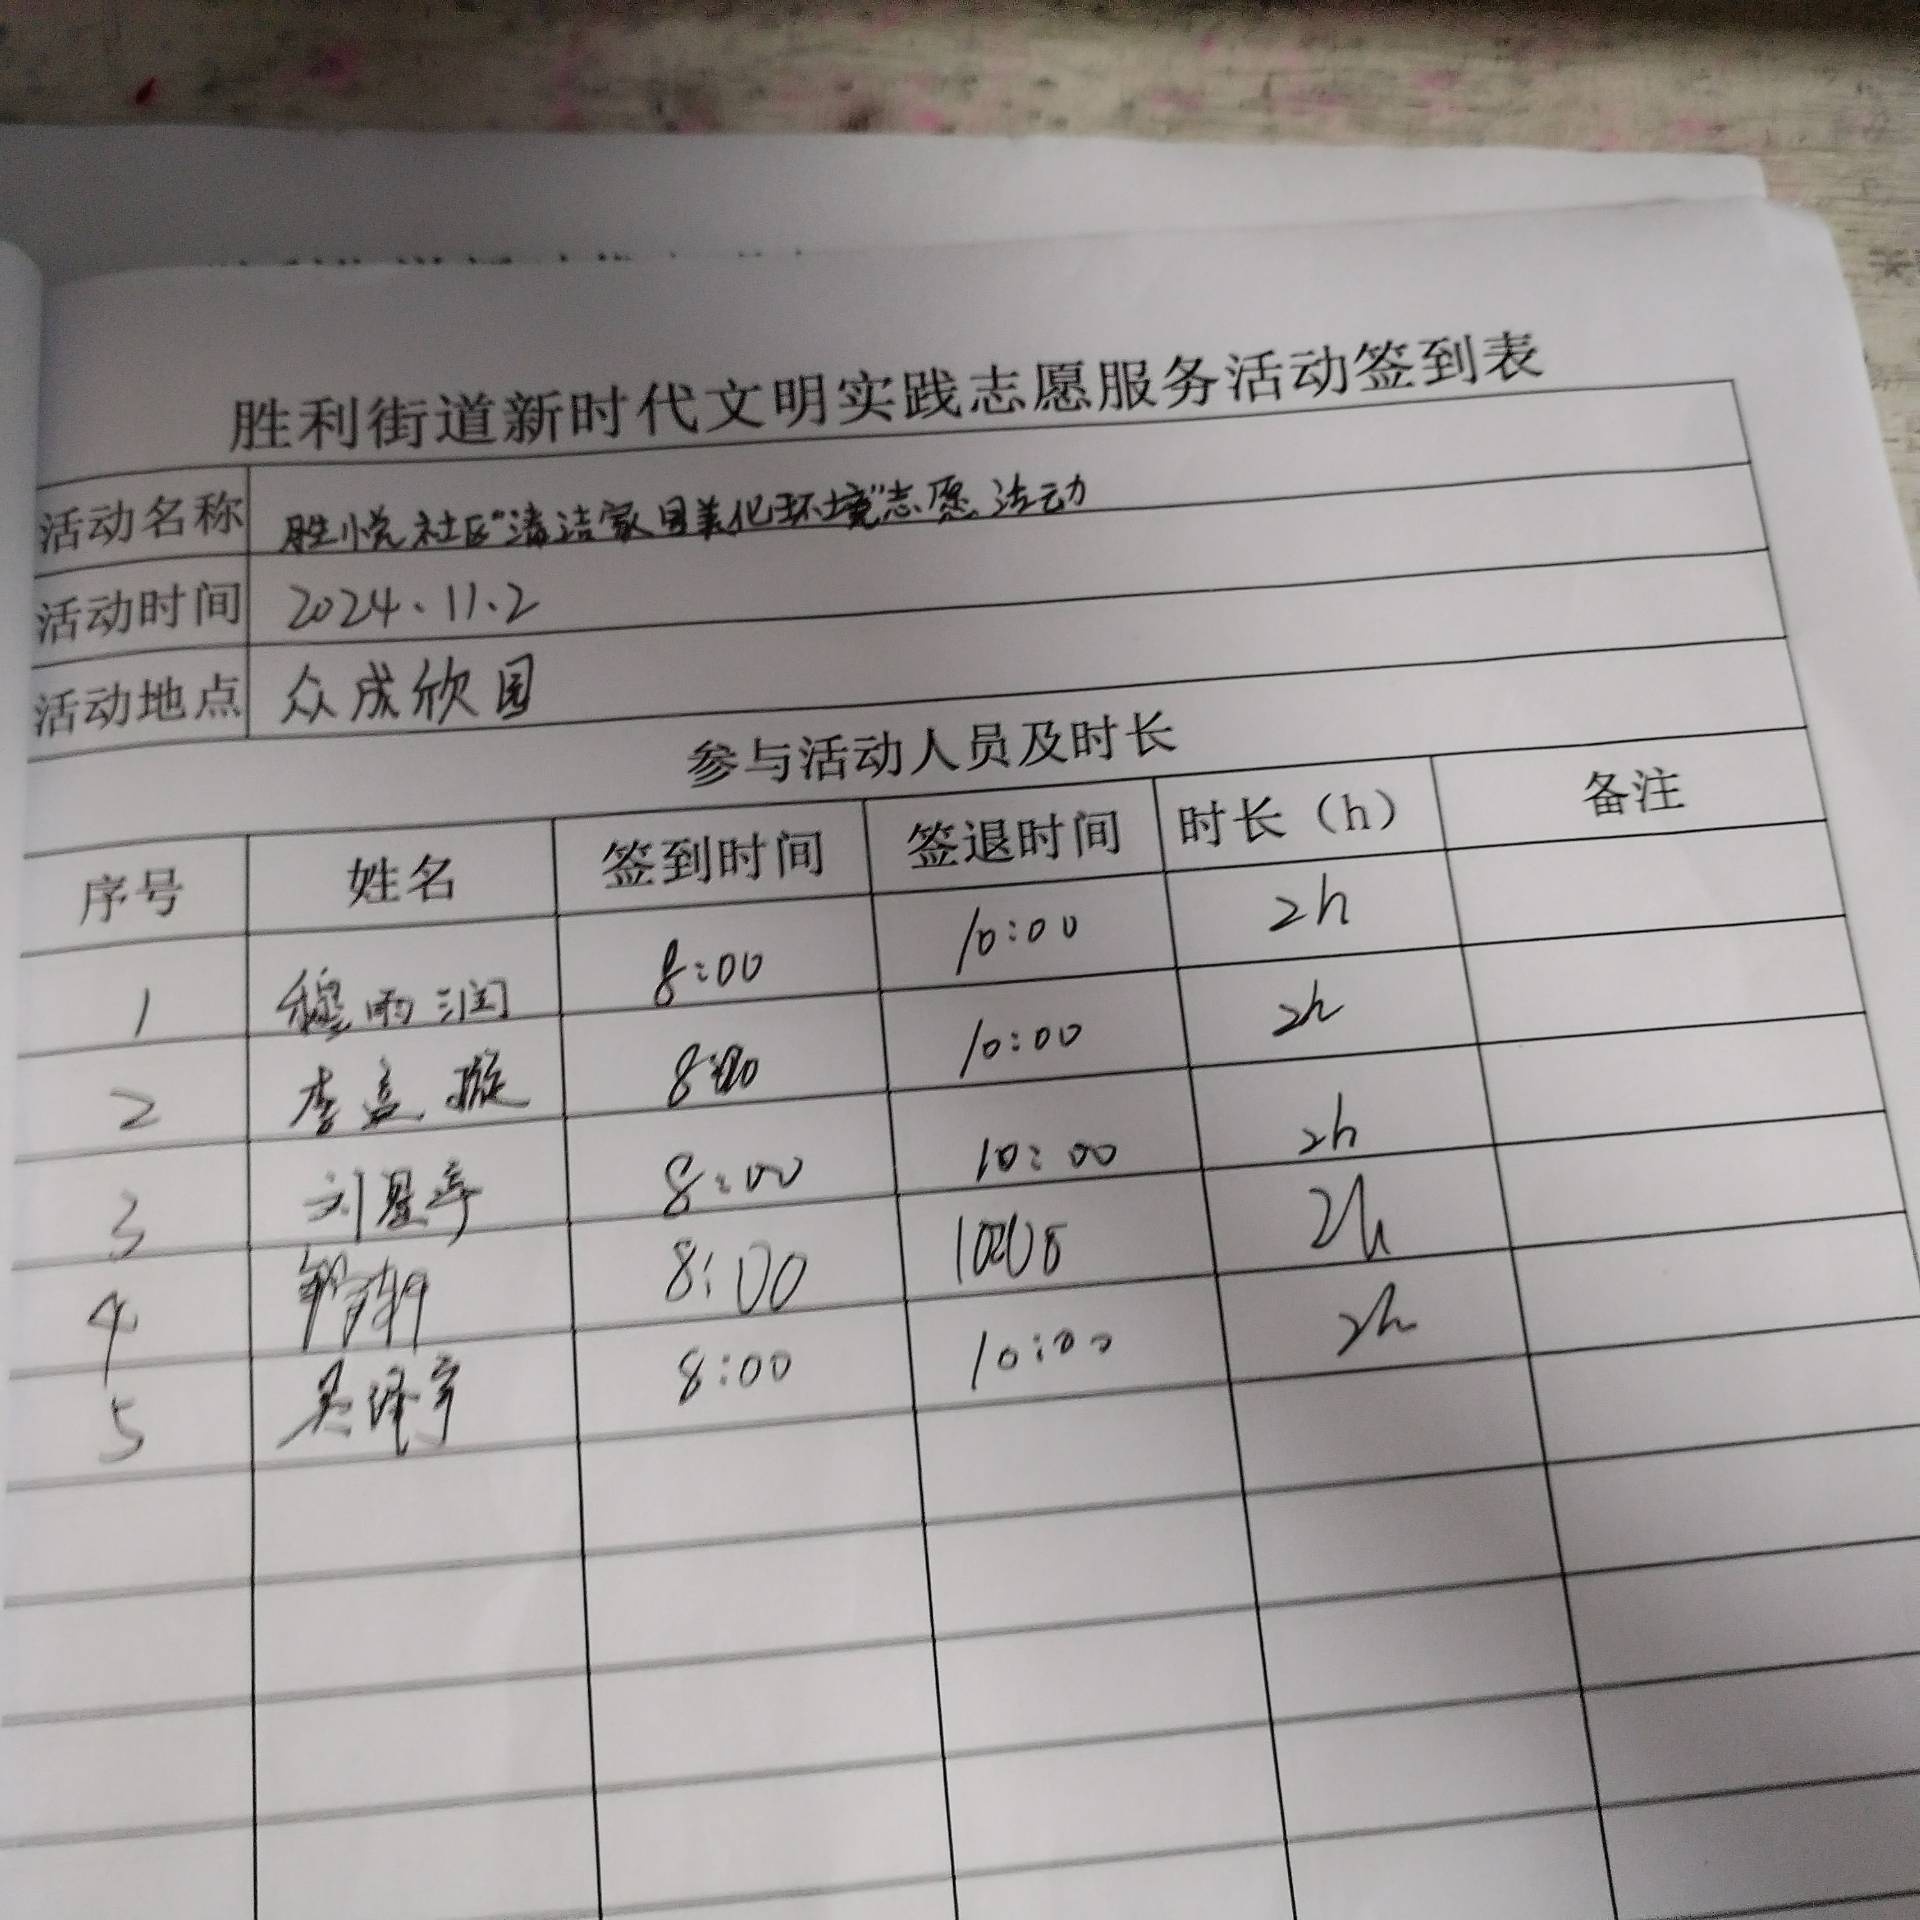 胜利街道新时代文明实践志愿服务活动签到表
活动名称 胜悦社区"清洁家园美化环境"志愿活动
活动时间 2024.11.2
活动地点 众成欣园
参与活动人员及时长
序号 姓名 签到时间 签退时间 时长（h） 备注
1 穆雨润 8:00 10:00 2h
2 李孟璇 8:00 10:00 2h
3 刘 8:00 10:00 2h
4 8:00 10:00 2h
5 吴泽宇 8:00 10:00 2h